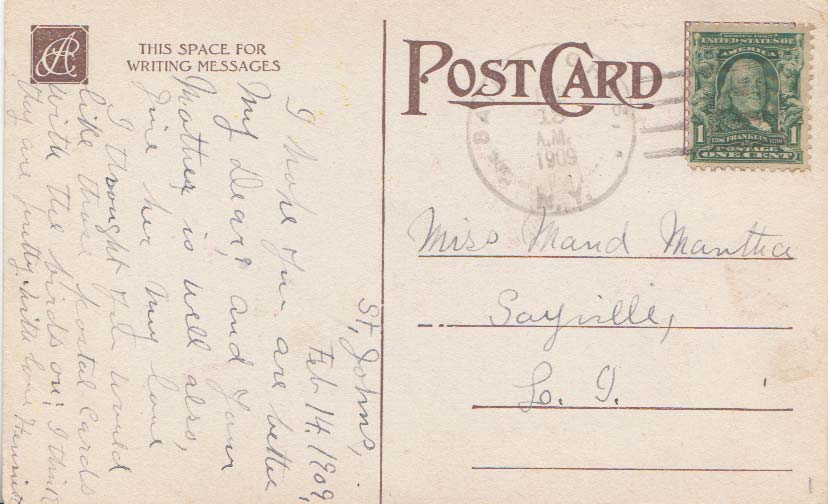 THIS SPACE FOR
WRITING MESSAGES
POST CARD
SERIES 1902
UNITED STATES OF AMERICA
1 FRANKLIN 1
POSTAGE
ONE CENT
A.M.
1909
N.Y.
St. Johns,
Feb 14, 1909,
I hope you are better
My Dear, and your
Mother is well also,
Give her my love
I thought you would
like these postal cards
with the birds on; I think
they are pretty, with love
Miss Maud Mantha
Sayville,
L. I.
1